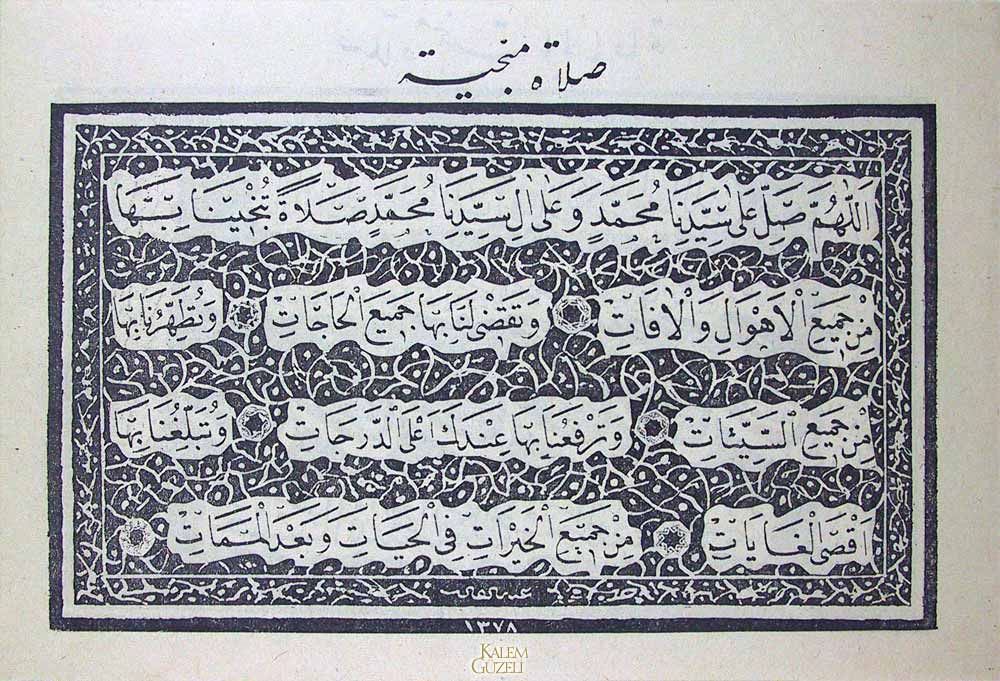 صلاة منجية
اَللّٰهُمَّ صَلِّ عَلٰى سَيِّدِنَا مُحَمَّدٍ وَعَلٰى اٰلِ سَيِّدِنَا مُحَمَّدٍ صَلَاةً تُنْجِينَا بِهَا
مِنْ جَمِيعِ الْاَهْوَالِ وَالْاٰفَاتِ وَتَقْضِى لَنَا بِهَا جَمِيعَ الْحَاجَاتِ وَتُطَهِّرُنَا بِهَا
مِنْ جَمِيعِ السَّيِّئَاتِ وَتَرْفَعُنَا بِهَا عِنْدَكَ اَعْلَى الدَّرَجَاتِ وَتُبَلِّغُنَا بِهَا
اَقْصَى الْغَايَاتِ مِنْ جَمِيعِ الْخَيْرَاتِ فِى الْحَيَاتِ وَبَعْدَ الْمَمَاتِ
١٣٧٨
KALEM
GÜZELİ